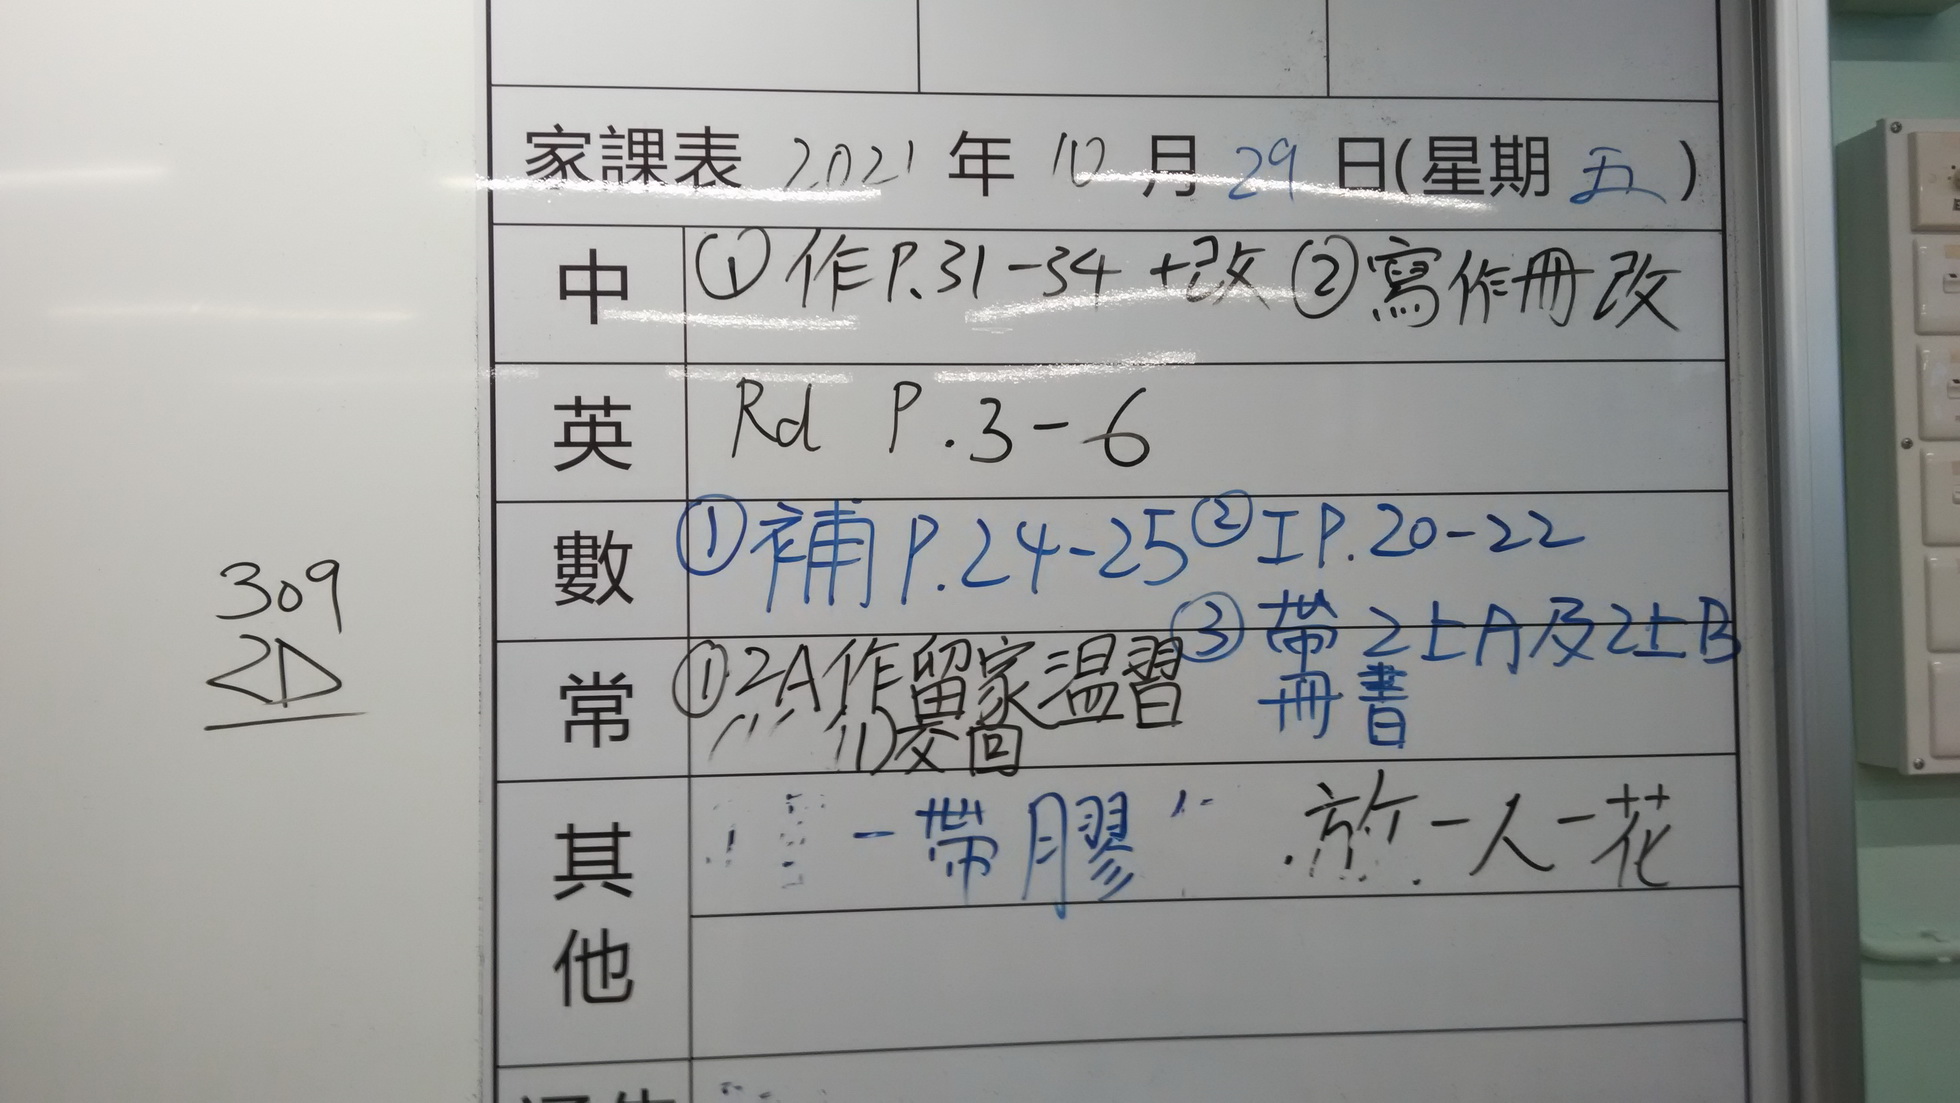 家課表 2021 年 10 月 29 日(星期 五)
中 ①作P.31-34 +改 ②寫作冊改
英 Rd P.3-6
數 ①補P.24-25 ②IP.20-22
③帶2上A及2上B
冊書
常 ①2A作留家温習
交回
其他 一帶膠 放一人一花
309
2D